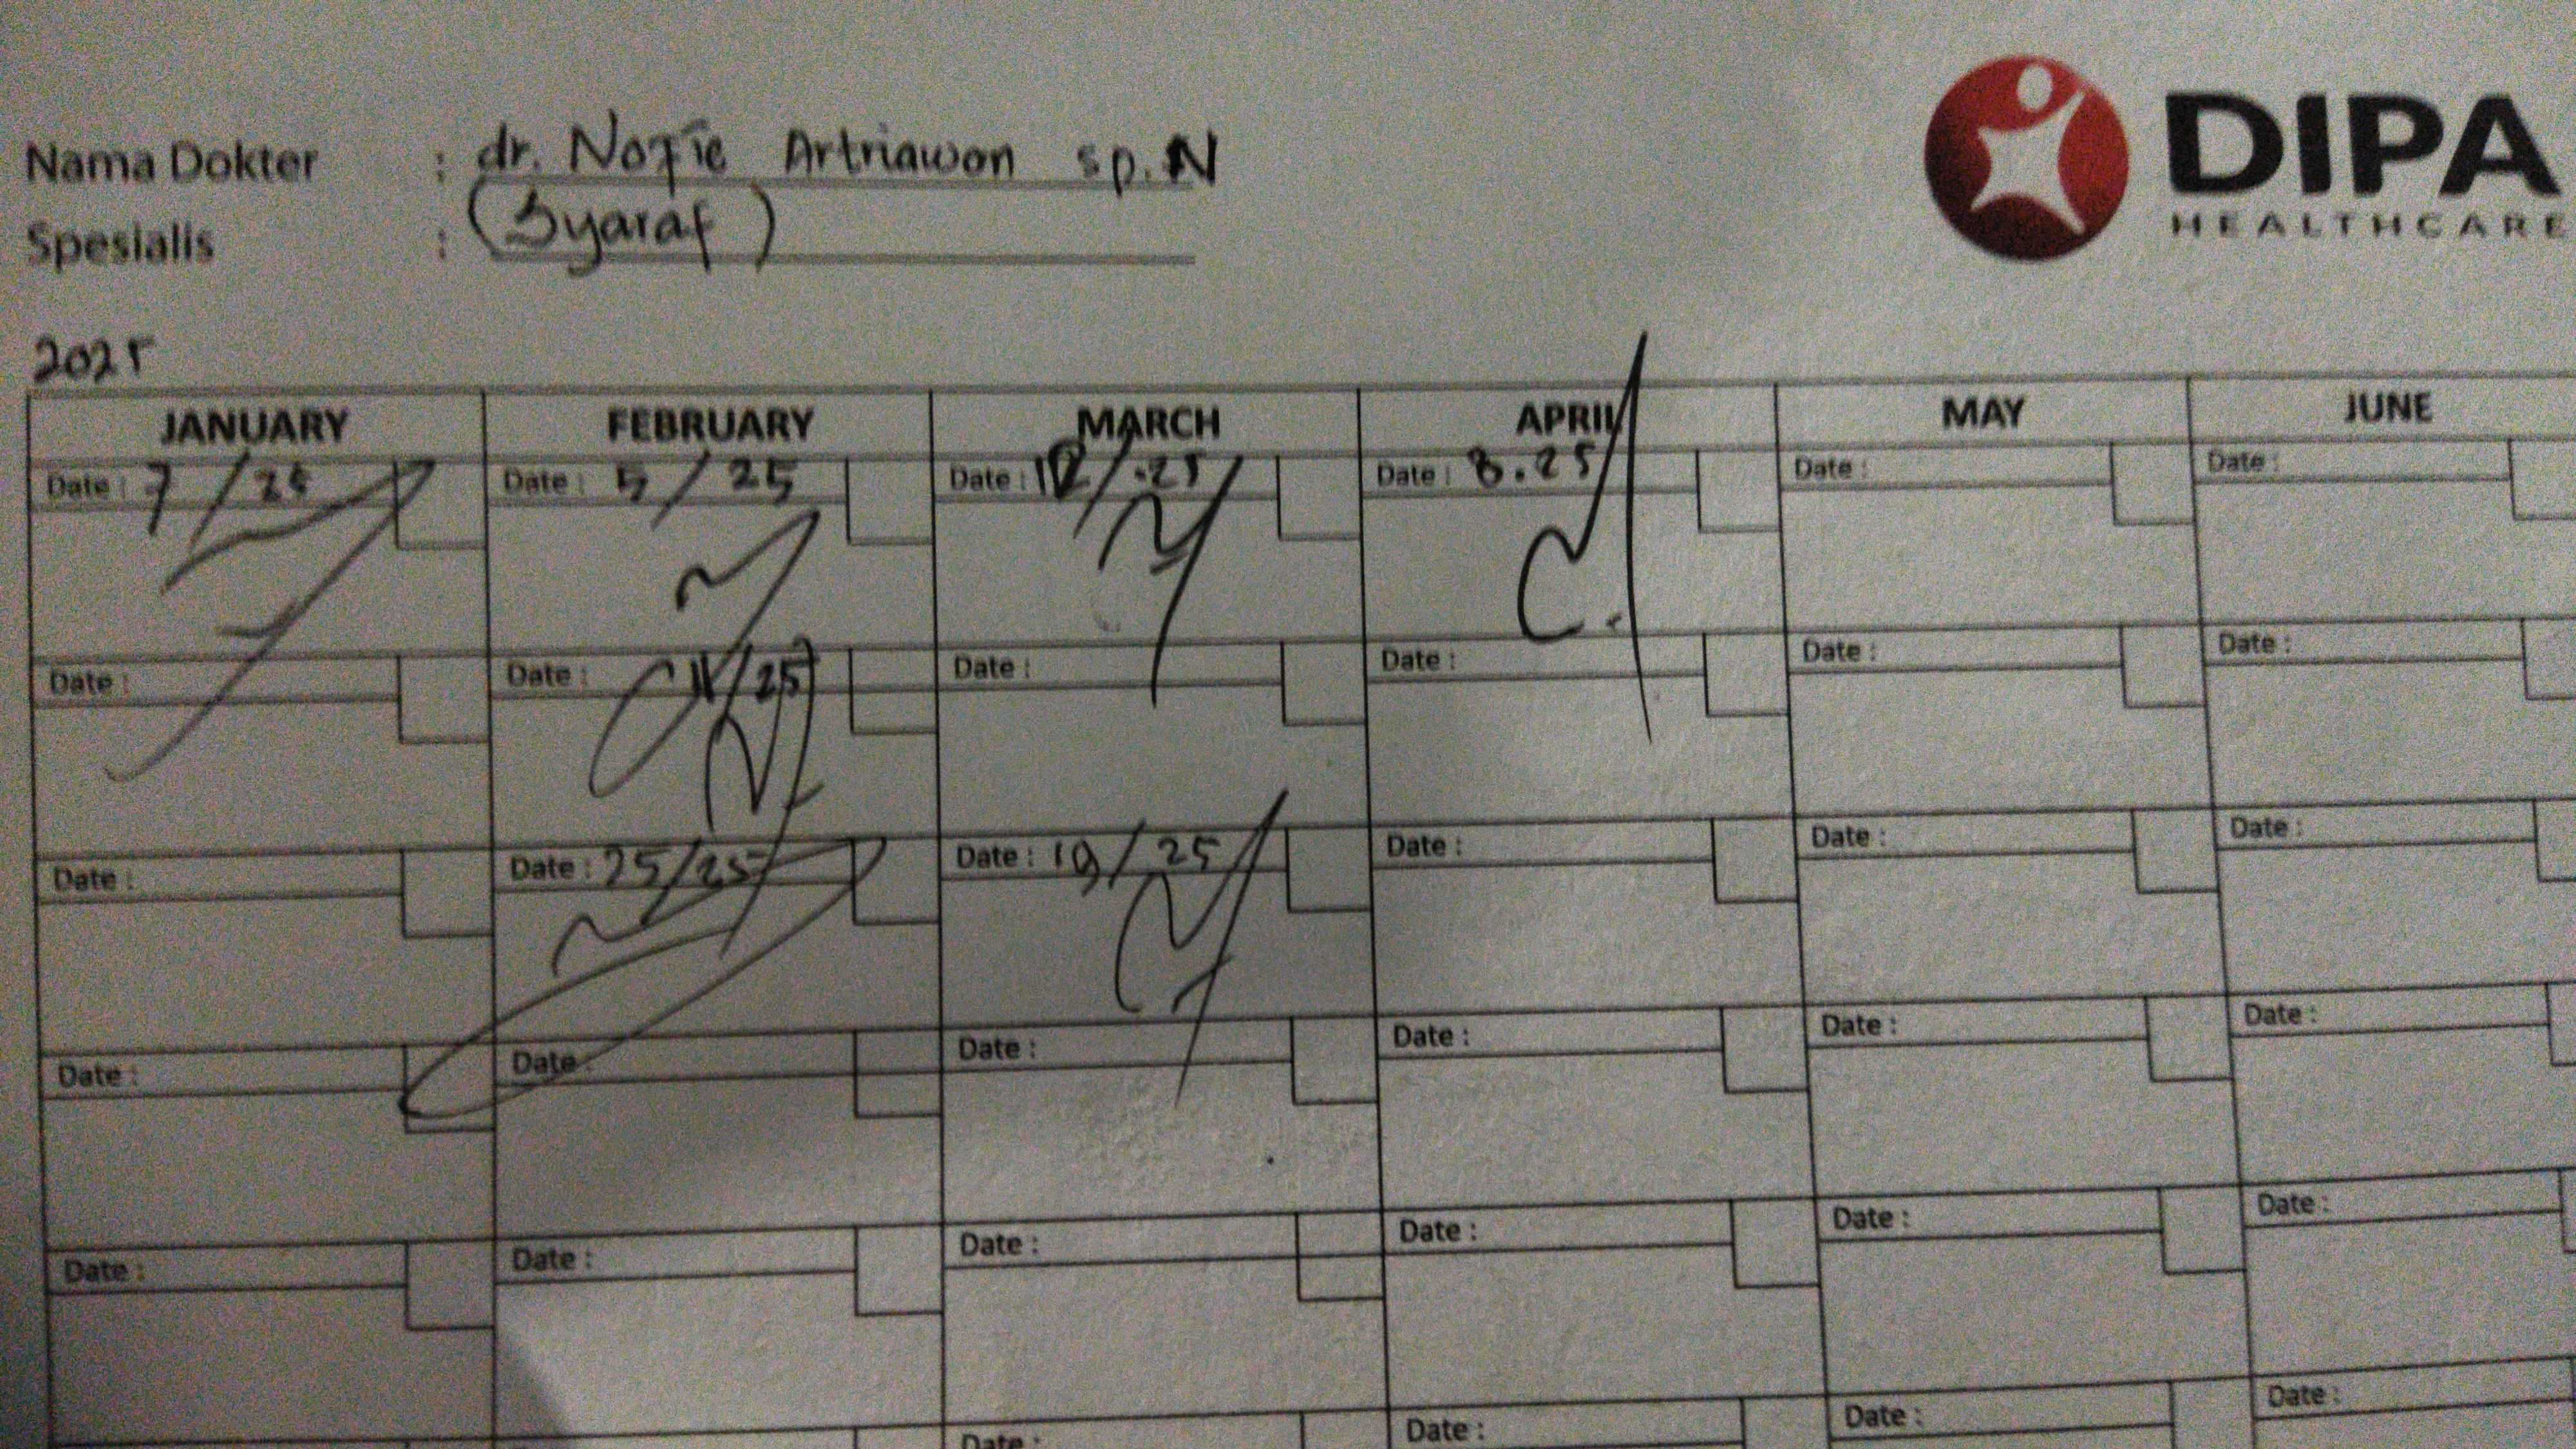 DIPA
HEALTHCARE
Nama Dokter : dr. Artriawan sp.N
Spesialis : (Syaraf)
2025
JANUARY FEBRUARY MARCH APRIL MAY JUNE
Date : 7/25 Date : 5/25 Date : /.25 Date : 8.25 Date : Date :
Date : Date : 11/25 Date : Date : Date : Date :
Date : Date : 25/25 Date : 19/25 Date : Date : Date :
Date : Date Date : Date : Date : Date :
Date : Date : Date : Date : Date : Date :
Date : Date : Date : Date :